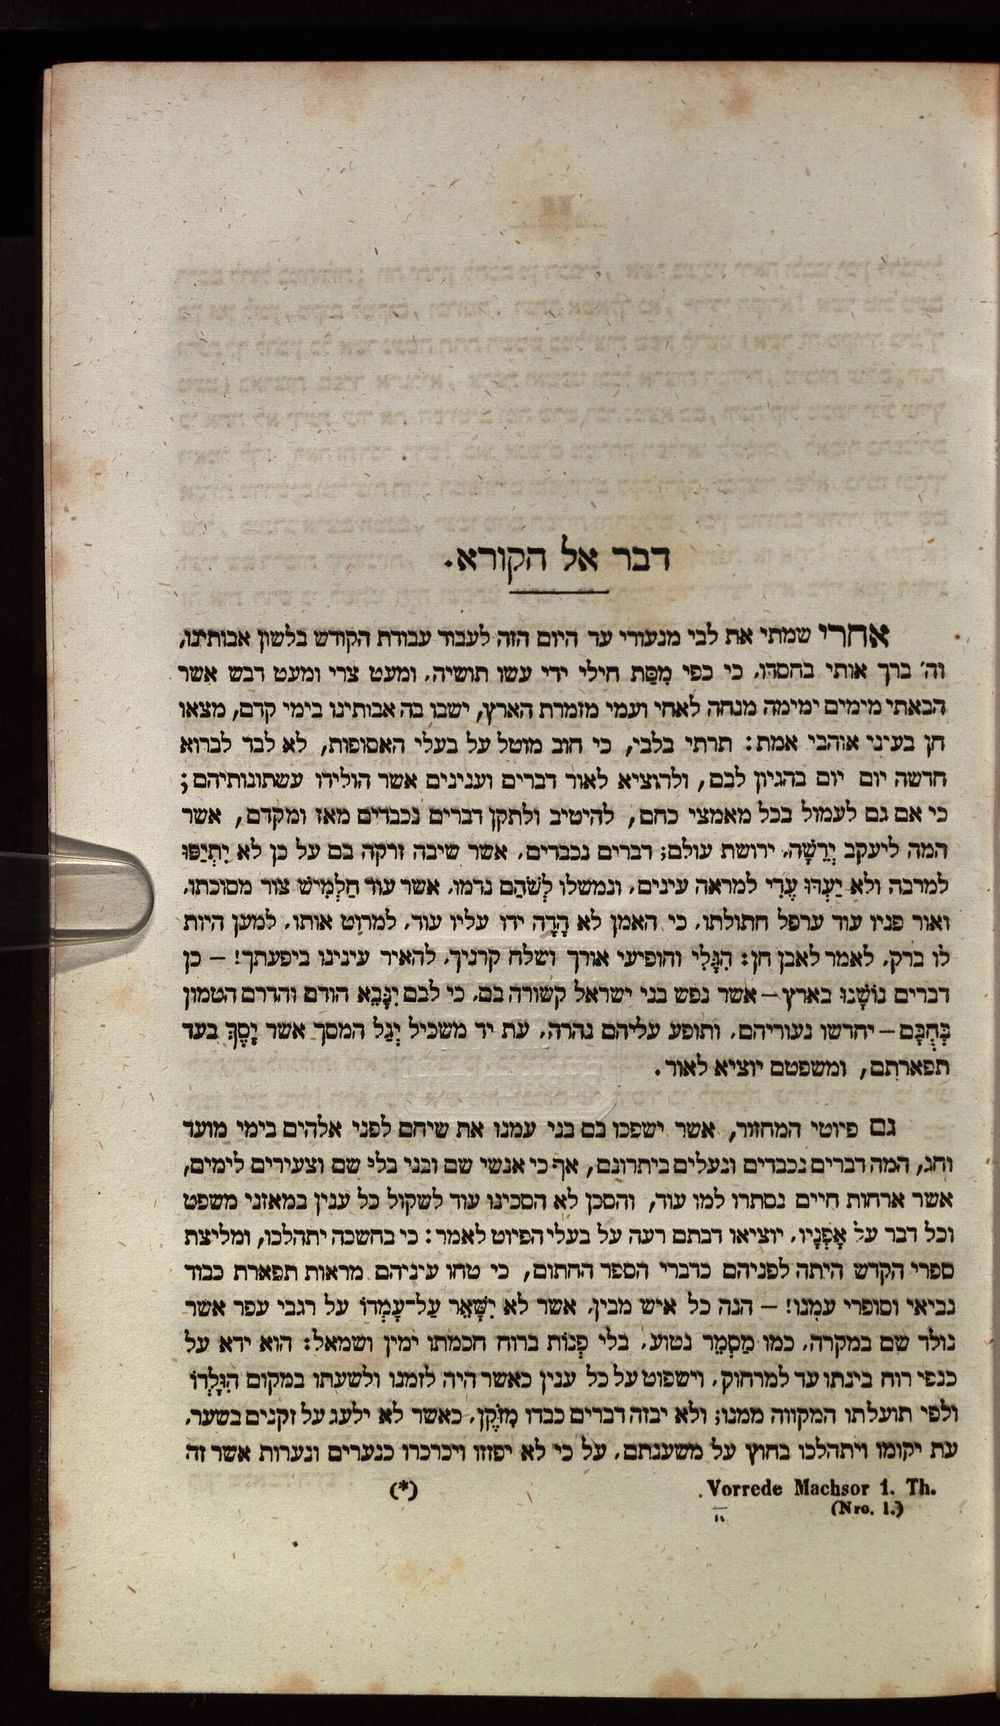 דבר אל הקורא.
אחרי שמתי את לבי מנעורי עד היום הזה לעבוד עבודת הקודש בלשון אבותינו,
וה׳ ברך אותי בחסדו, כי כפי מִסַּת חילי ידי עשו תושיה, ומעט צרי ומעט דבש אשר
הבאתי מימים ימימה מנחה לאחי ועמי מזמרת הארץ, ישבו בה אבותינו בימי קדם, מצאו
חן בעיני אוהבי אמת: תרתי בלבי, כי חוב מוטל על בעלי האסופות, לא לבד לברוא
חדשה יום יום בהגיון לבם, ולהוציא לאור דברים וענינים אשר הולידו עשתונותיהם;
כי אם גם לעמול בכל מאמצי כחם, להיטיב ולתקן דברים נכבדים מאז ומקדם, אשר
המה ליעקב יְרֵשָׁה, ירושת עולם; דברים נכבדים, אשר שיבה זרקה בם על כן לא יִתְיַפּוּ
למרבה ולא יַעְדּוּ עֲדִי למראה עינים, ונמשלו לְשֹׁהַם נדמו, אשר עוד חַלְמִישׁ צור מסוכתו,
ואור פניו עוד ערפל חתולתו, כי האמן לא הָדָה ידו עליו עוד, למרוט אותו, למען היות
לו ברק, לאמר לאבן חן: הִגָּלִי והופיעי אורך ושלח קרניך, להאיר עינינו ביפעתך! — כן
דברים נוֹשָׁנוּ בארץ — אשר נפש בני ישראל קשורה בם, כי לבם יְנַבֵּא הודם והדרם הטמון
בְּחֻבָּם — יחדשו נעוריהם, ותופע עליהם נהרה, עת יד משכיל יְגַל המסך אשר יָסֶךְ בעד
תפארתם, ומשפטם יוציא לאור.
גם פיוטי המחזור, אשר ישפכו בם בני עמנו את שיחם לפני אלהים בימי מועד
וחג, המה דברים נכבדים ונעלים ביתרונם, אף כי אנשי שם ובני בלי שם וצעירים לימים,
אשר ארחות חיים נסתרו למו עוד, והסכן לא הסכינו עוד לשקול כל ענין במאזני משפט
וכל דבר על אָפְנָיו, יוציאו דבתם רעה על בעלי הפיוט לאמר: כי בחשכה יתהלכו, ומליצת
ספרי הקדש היתה לפניהם כדברי הספר החתום, כי טחו עיניהם מראות תפארת כבוד
נביאי וסופרי עמנו! — הנה כל איש מבין, אשר לא יִשָּׁאֵר עַל־עָמְדוֹ על רגבי עפר אשר
נולד שם במקרה, כמו מַסְמֵר נטוע, בלי פְנוֹת ברוח חכמתו ימין ושמאל: הוא ידא על
כנפי רוח בינתו עד למרחוק, וישפוט על כל ענין כאשר היה לזמנו ולשעתו במקום הִוָּלְדוֹ
ולפי תועלתו המקווה ממנו; ולא יבזה דברים כבדו מִזֹּקֶן, כאשר לא ילעג על זקנים בשער,
עת יקומו ויתהלכו בחוץ על משענתם, על כי לא יפזזו ויכרכרו כנערים ונערות אשר זה
Vorrede Machsor 1. Th.
(*)
(Nro. 1.)